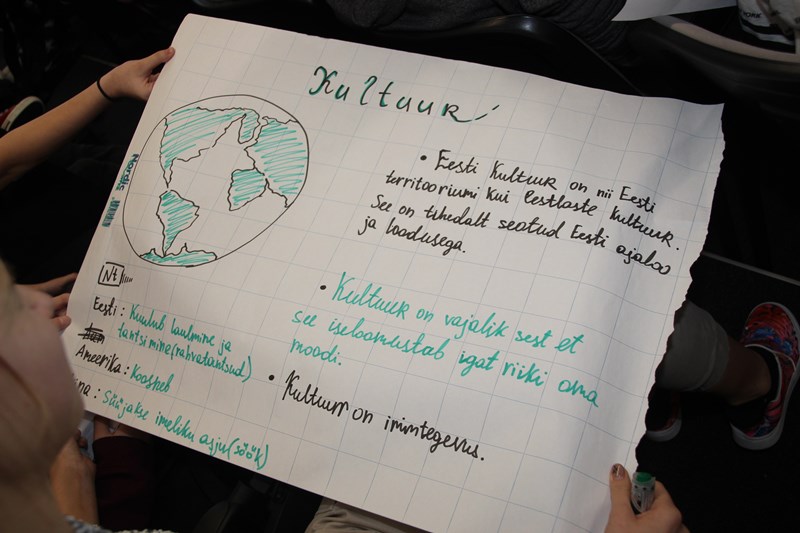 Kultuur
Nordic
• Eesti Kultuur on nii Eesti
territooriumi kui Eestlaste kultuur.
See on tihedalt seotud Eesti ajaloo
ja loodusega.
• Kultuur on vajalik sest et
see iseloomustab igat riiki oma
moodi.
• Kultuur on inimtegevus.
Nt
Eesti: Kuulub laulmine ja
tantsimine (rahvatantsud)
Ameerika: Koosneb
na: Süüjakse imeliku asju (söök)